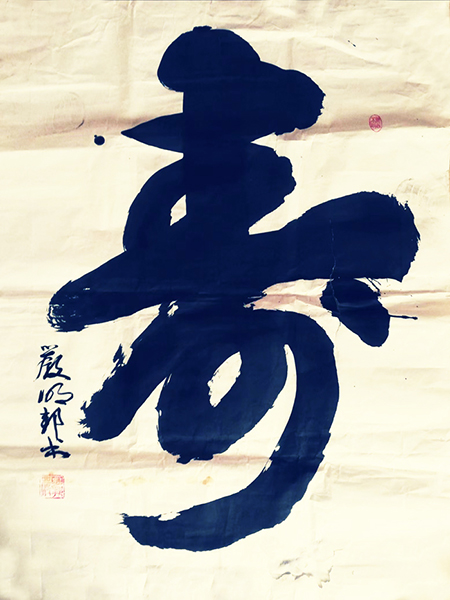 寿
嚴明邦书